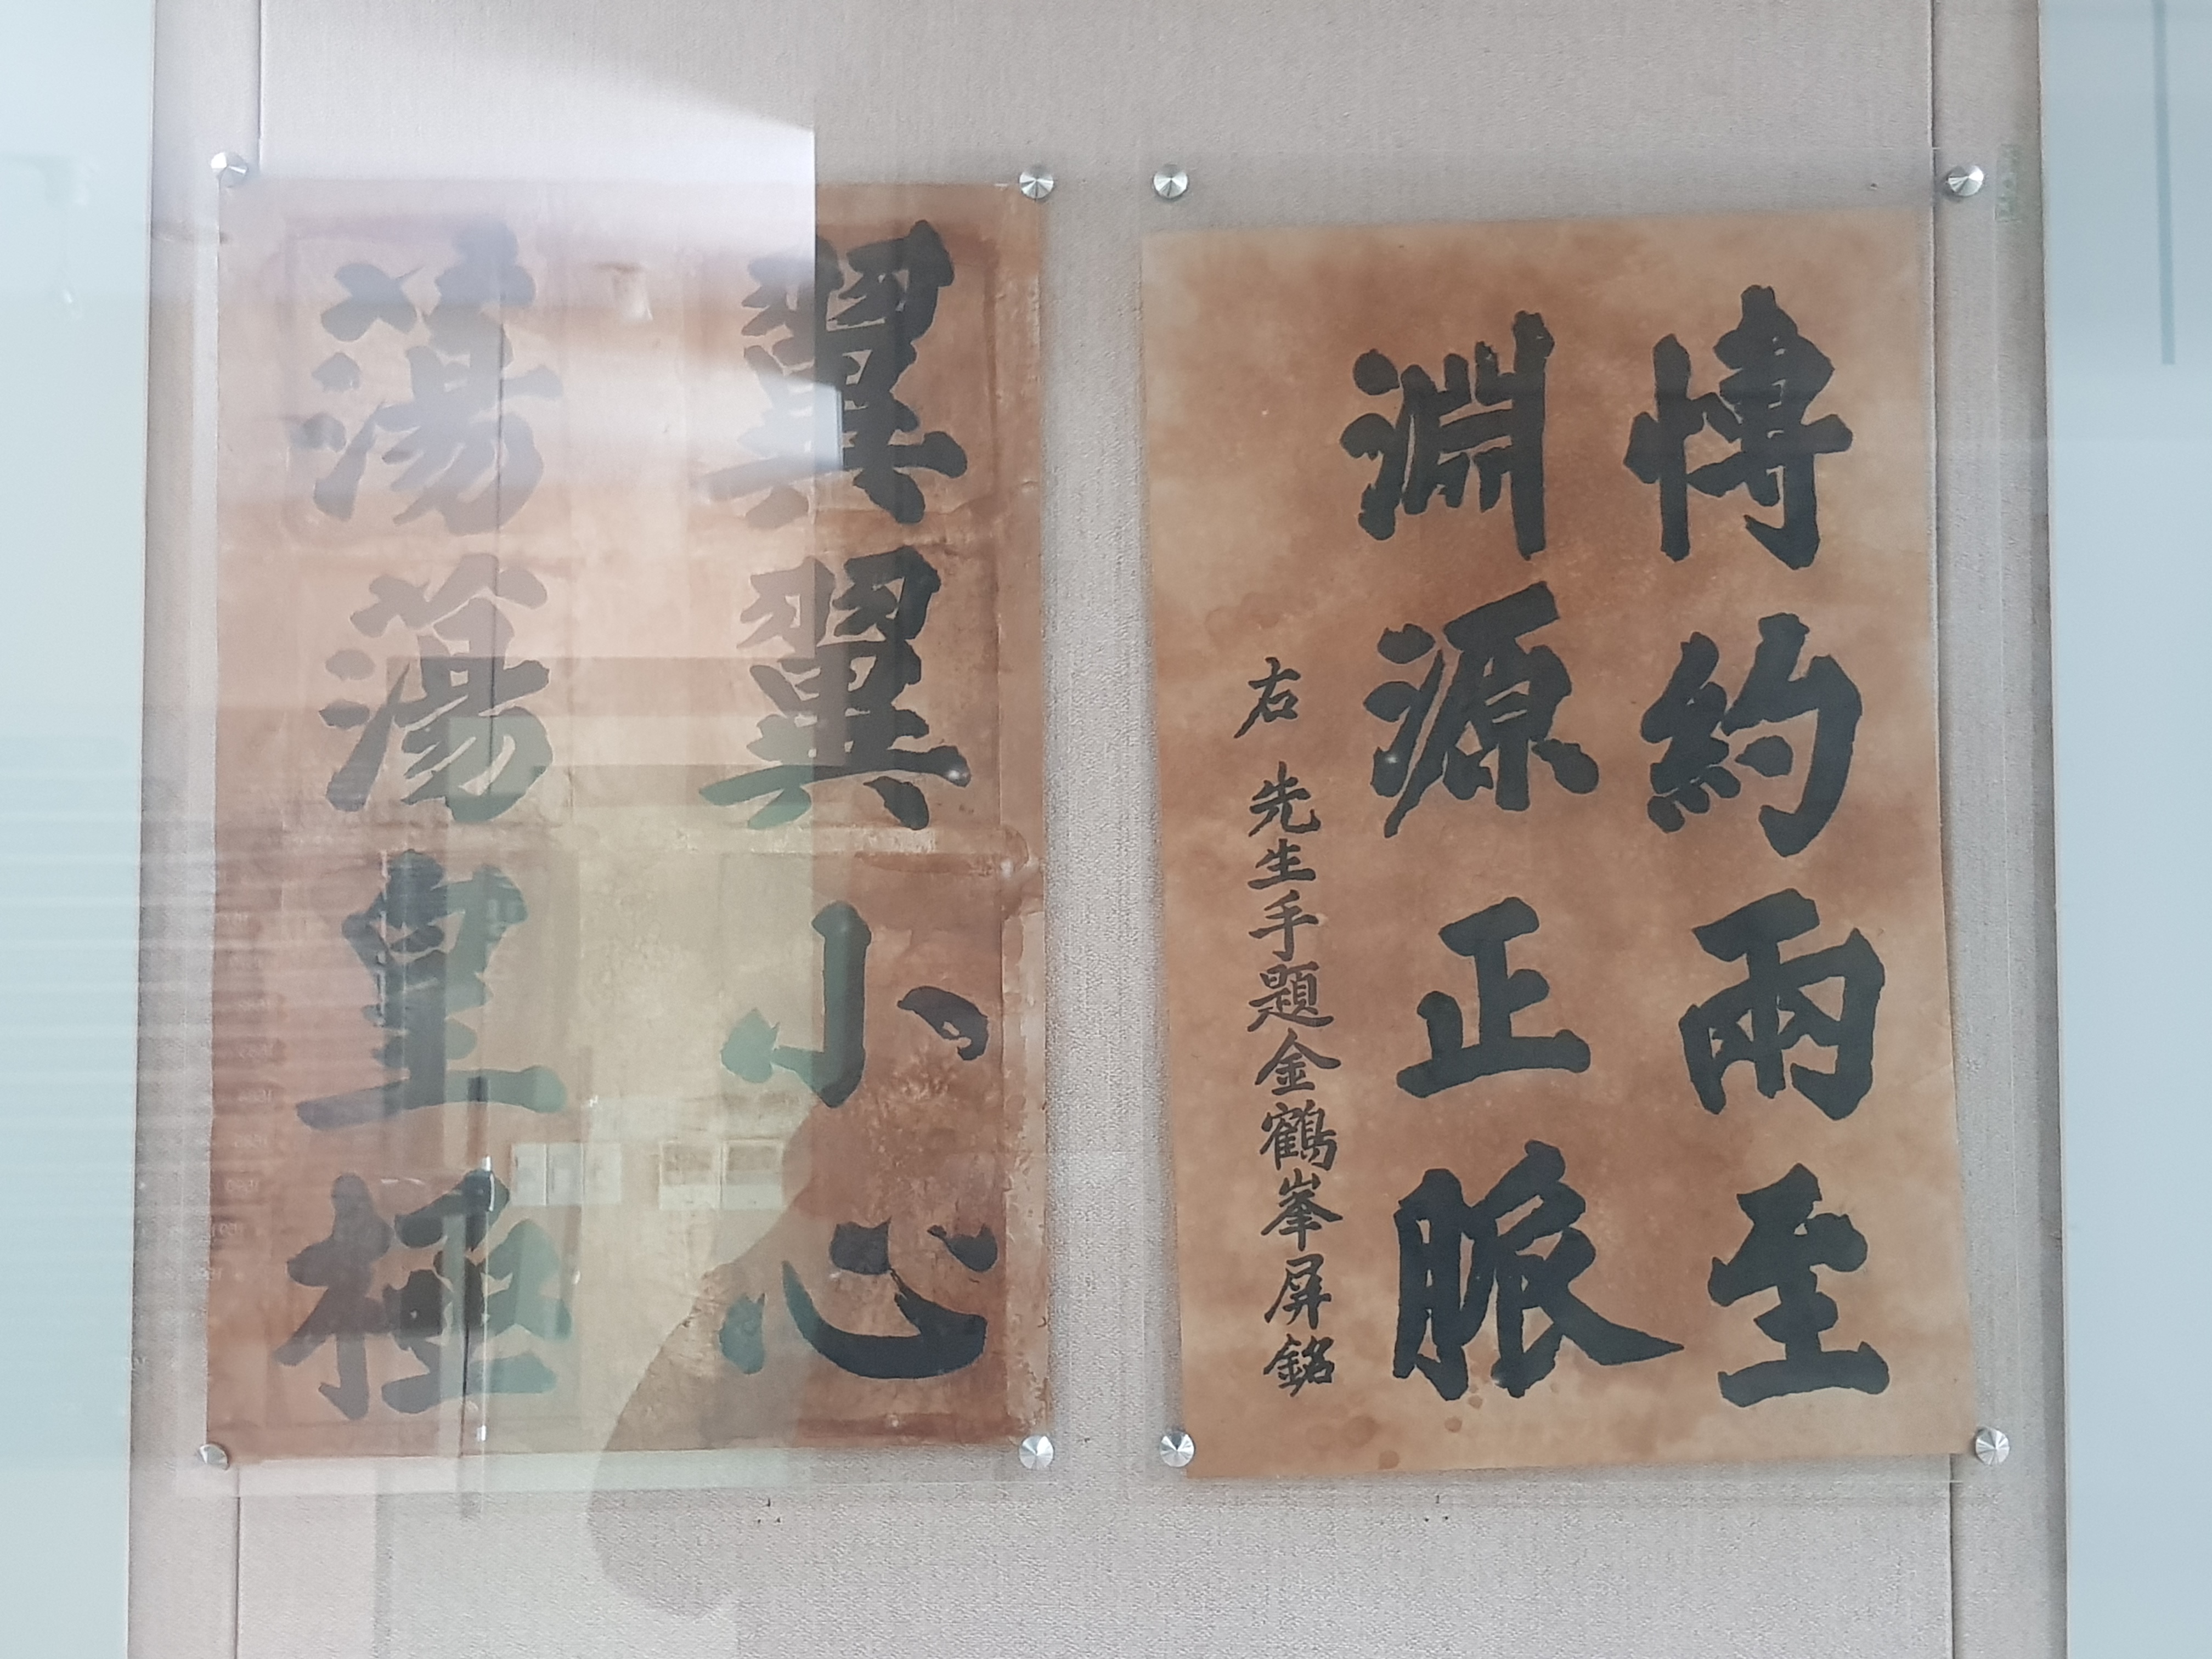 博約兩至
淵源正脈
右 先生手題金鶴峯屏銘
翼翼小心
蕩蕩皇極